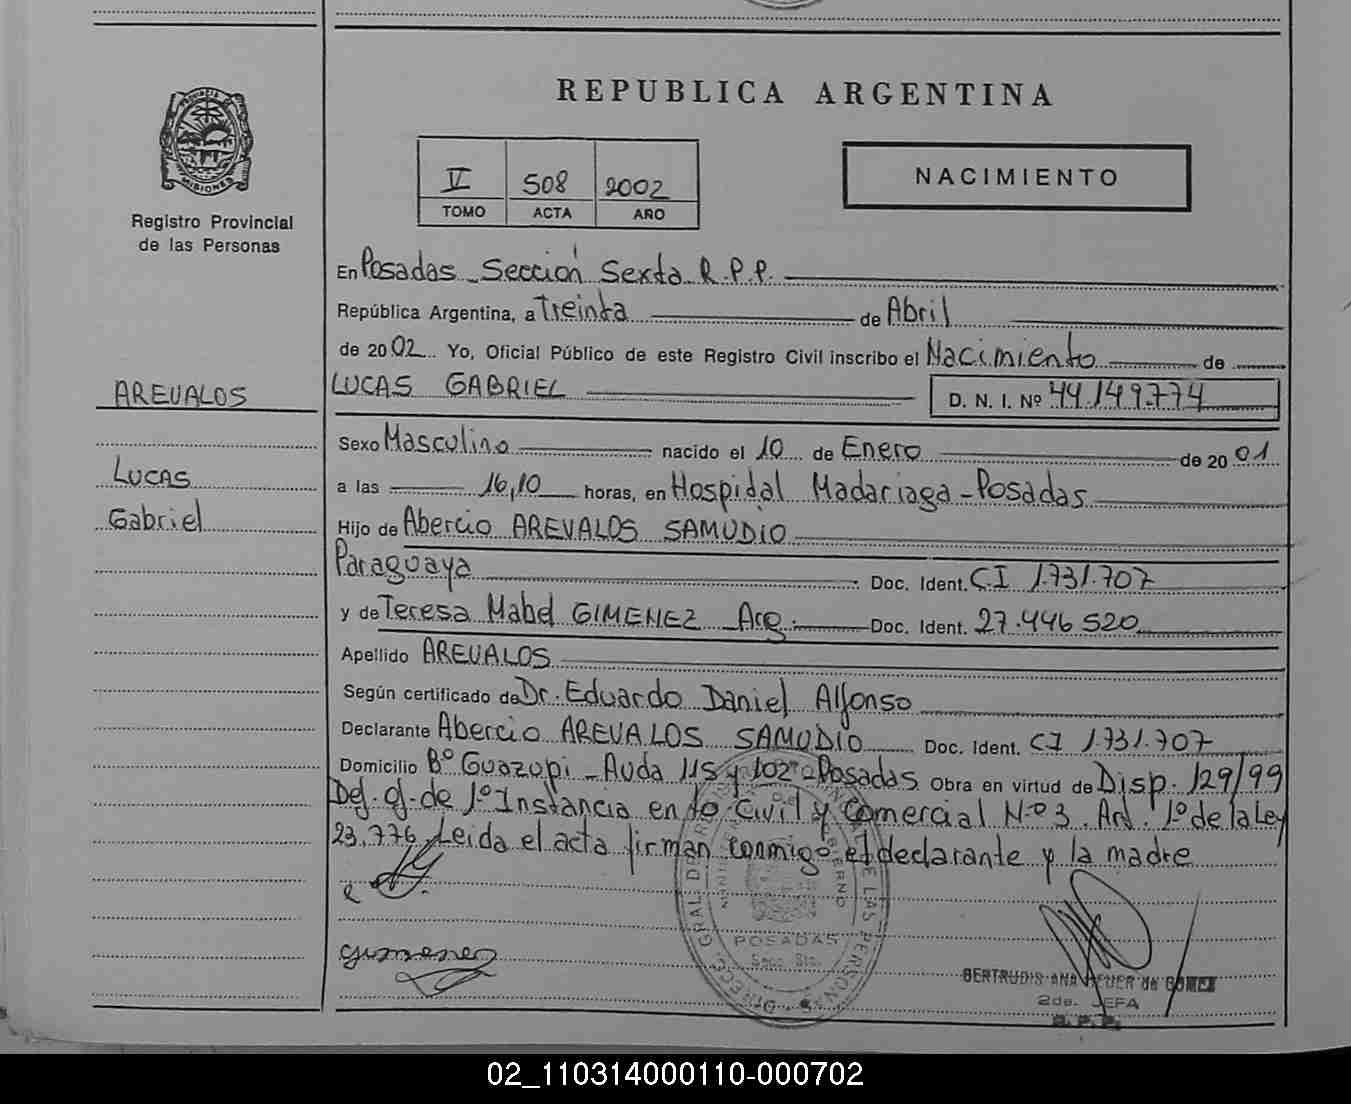 REPUBLICA ARGENTINA
PROVINCIA DE
MISIONES
Registro Provincial
de las Personas
V 508 2002
TOMO ACTA AÑO
NACIMIENTO
En Posadas - Sección Sexta R.P.P.
República Argentina, a Treinta de Abril
de 2002 Yo, Oficial Público de este Registro Civil inscribo el Nacimiento de
AREVALOS
LUCAS GABRIEL D. N. I. Nº 44.149.774
Sexo Masculino nacido el 10 de Enero de 2001
Lucas
a las 16,10 horas, en Hospidal Madariaga - Posadas
Gabriel
Hijo de Abercio AREVALOS SAMUDIO
Paraguaya Doc. Ident. CI 1.731.707
y de Teresa Mabel GIMENEZ Arg. Doc. Ident. 27.446.520
Apellido AREVALOS
Según certificado de Dr. Eduardo Daniel Alfonso
Declarante Abercio AREVALOS SAMUDIO Doc. Ident. CI 1.731.707
Domicilio Bº Guazupi - Avda 115 y 102 - Posadas Obra en virtud de Disp. 129/99
Def. of. de 1º Instancia en lo Civil y Comercial Nº 3. Art. 1º de la Ley
23.776. Leida el acta firman conmigo el declarante y la madre
Gimenez
POSADAS
Secc. 6ta.
GERTRUDIS ANA de GOMEZ
2da. JEFA
R. P. P.
02_110314000110-000702